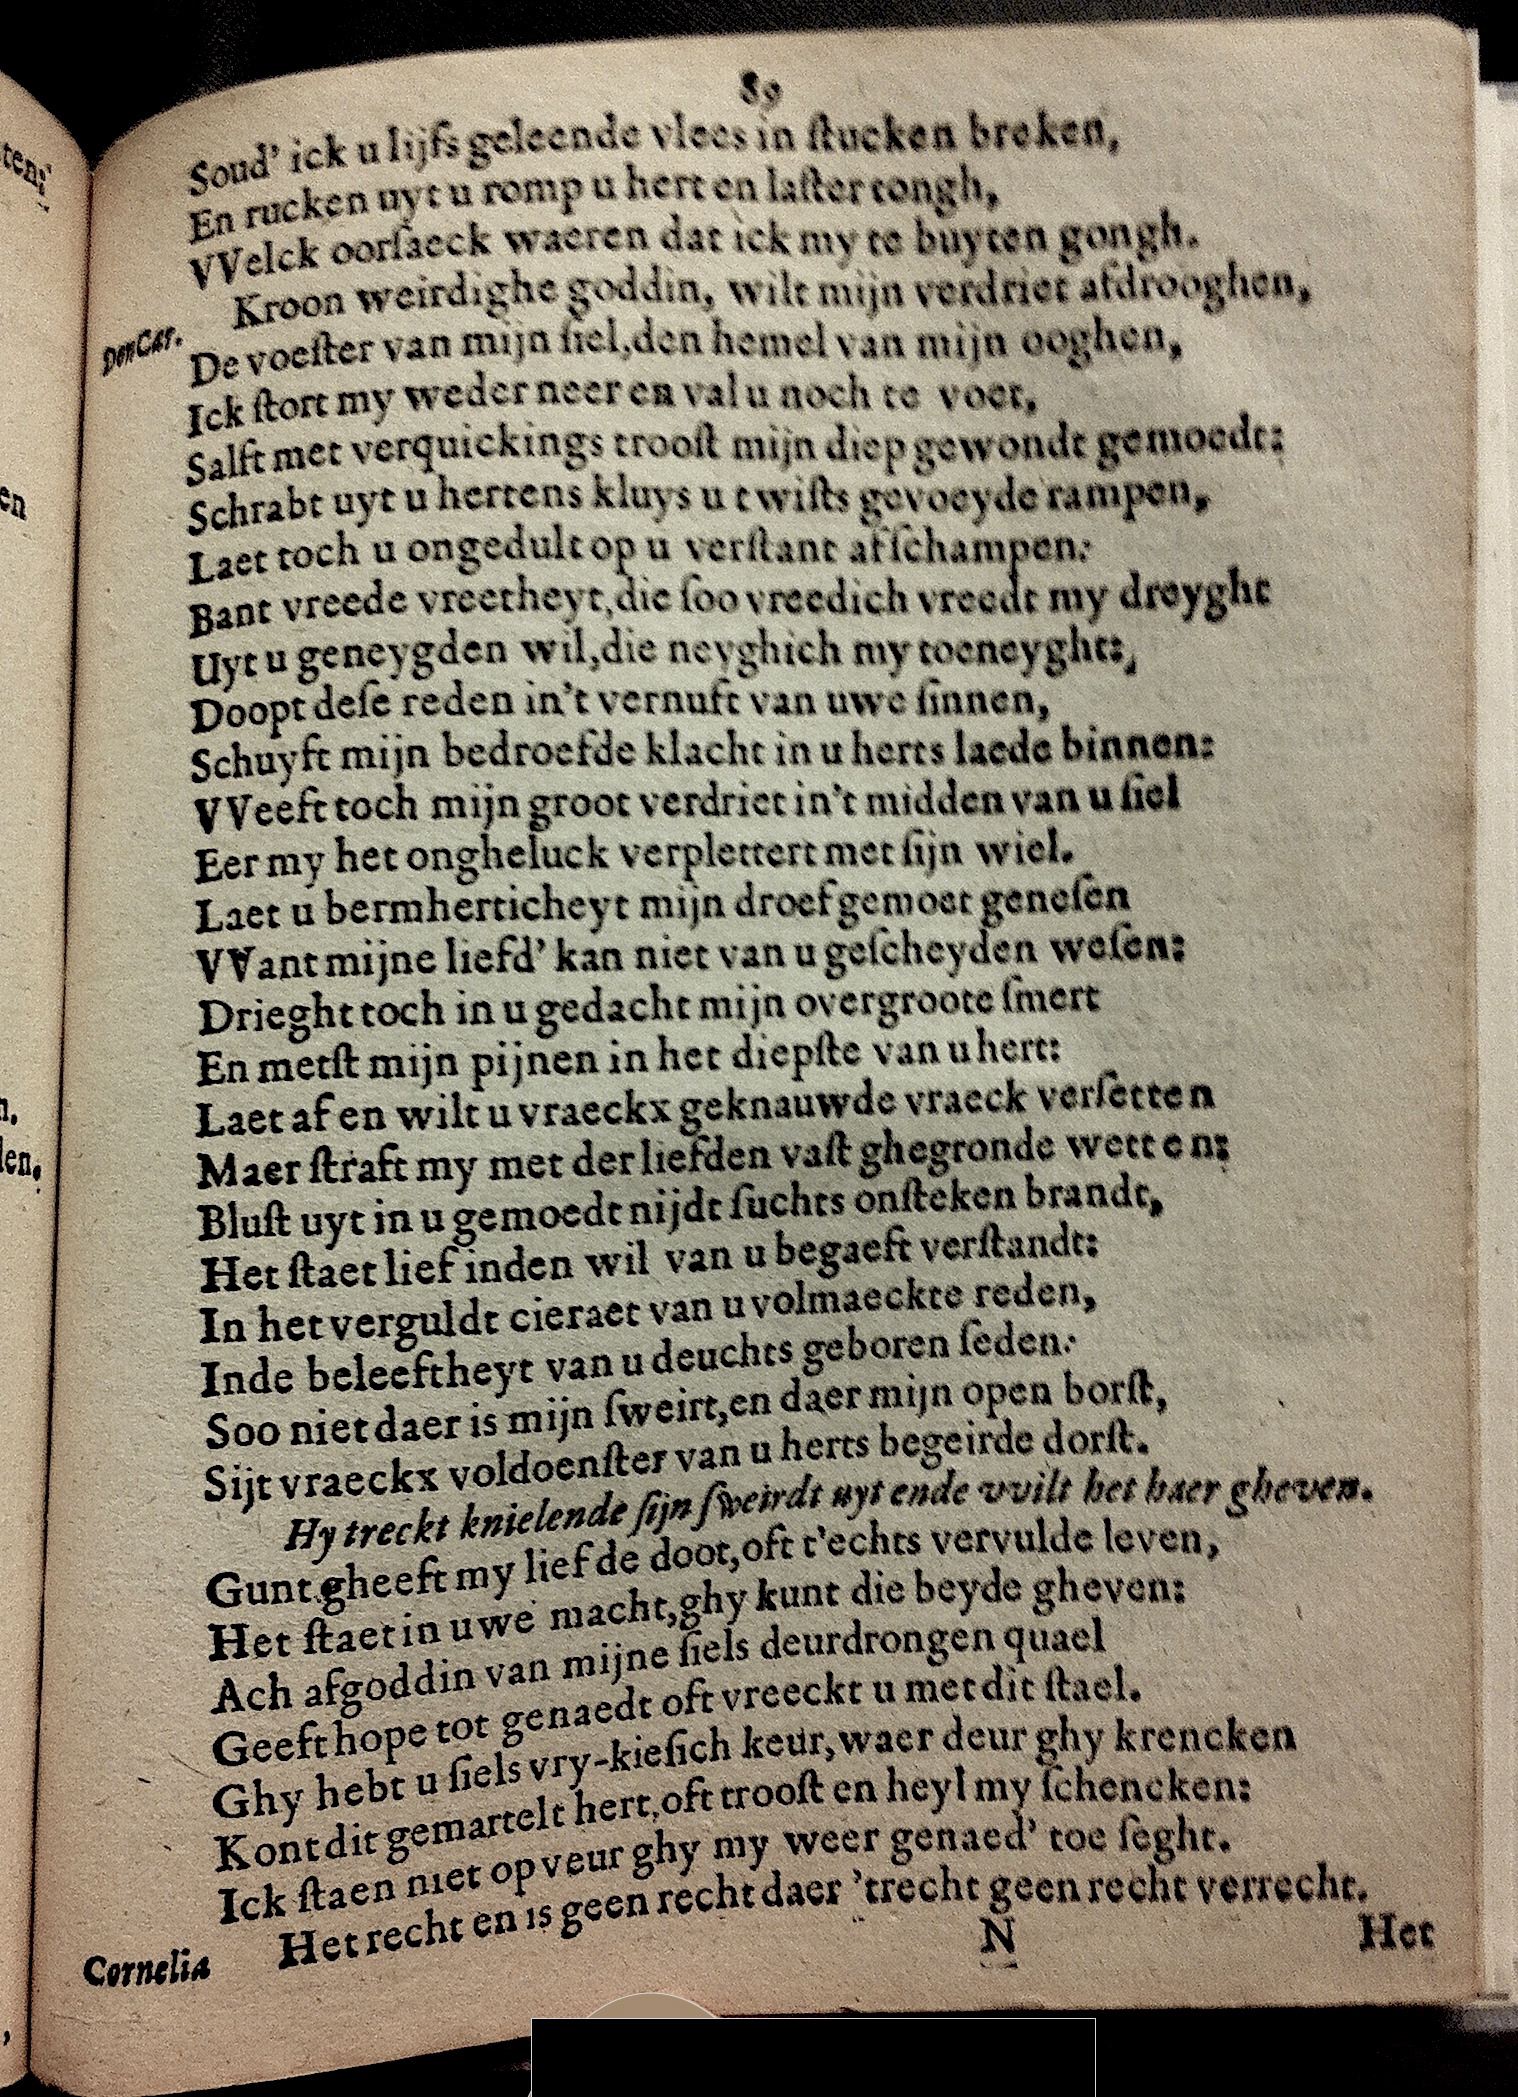 89
Soud' ick u lijfs geleende vlees in ſtucken breken,
En rucken uyt u romp u hert en laſter tongh,
VVelck oorſaeck waeren dat ick my te buyten gongh.
Don Car. Kroon weirdighe goddin, wilt mijn verdriet afdrooghen,
De voeſter van mijn ſiel,den hemel van mijn ooghen,
Ick ſtort my weder neer en val u noch te voet,
Salft met verquickings trooſt mijn diep gewondt gemoedt:
Schrabt uyt u hertens kluys u twiſts gevoeyde rampen,
Laet toch u ongedult op u verſtant afſchampen:
Bant vreede vreetheyt,die ſoo vreedich vreedt my dreyght
Uyt u geneygden wil,die neyghich my toeneyght:,
Doopt deſe reden in't vernuft van uwe ſinnen,
Schuyft mijn bedroefde klacht in u herts laede binnen:
VVeeft toch mijn groot verdriet in't midden van u ſiel
Eer my het ongheluck verplettert met ſijn wiel.
Laet u bermherticheyt mijn droef gemoet geneſen
VVant mijne liefd' kan niet van u geſcheyden weſen:
Drieght toch in u gedacht mijn overgroote ſmert
En metſt mijn pijnen in het diepſte van u hert:
Laet af en wilt u vraeckx geknauwde vraeck verſetten
Maer ſtraft my met der liefden vaſt ghegronde wetten:
Bluſt uyt in u gemoedt nijdt ſuchts onſteken brandt,
Het ſtaet lief inden wil van u begaeft verſtandt:
In het verguldt cieraet van u volmaeckte reden,
Inde beleeftheyt van u deuchts geboren ſeden:
Soo niet daer is mijn ſweirt,en daer mijn open borſt,
Sijt vraeckx voldoenſter van u herts begeirde dorſt.
Hy treckt knielende ſijn ſweirdt uyt ende vvilt het haer gheven.
Gunt gheeft my liefde doot,oft t'echts vervulde leven,
Het ſtaet in uwe macht,ghy kunt die beyde gheven:
Ach afgoddin van mijne ſiels deurdrongen quael
Geeft hope tot genaedt oft vreeckt u met dit ſtael.
Ghy hebt u ſiels vry-kieſich keur,waer deur ghy krencken
Kont dit gemartelt hert,oft trooſt en heyl my ſchencken:
Ick ſtaen niet op veur ghy my weer genaed' toe ſeght.
Cornelia Het recht en is geen recht daer 'trecht geen recht verrecht.
N Het